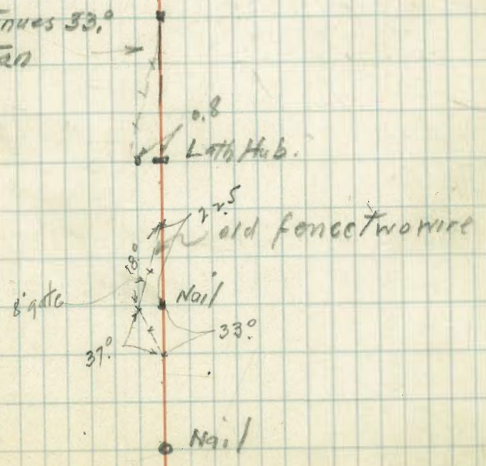 nues 33.°
an
0.8
Lath Hub.
22.5
old fence two wire
18°
8' gate
Nail
33°
37°
Nail